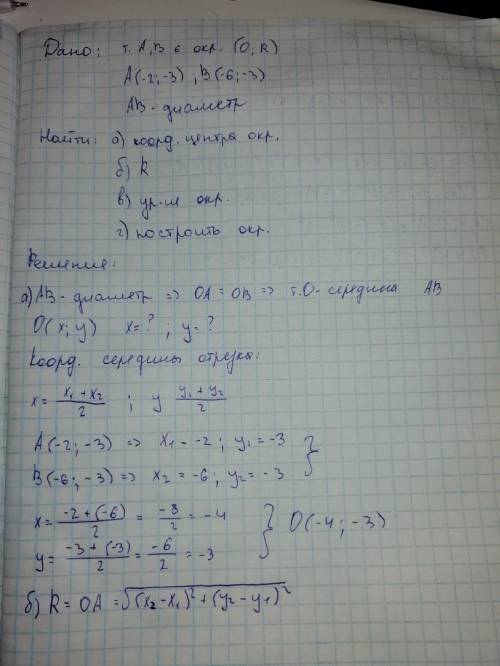 Дано: т. A, B ∈ окр. (O, R)
A(-2; -3), B(-6; -3)
AB - диаметр
Найти: а) коорд. центра окр.
б) R
в) ур-ие окр.
г) построить окр.
Решение:
а) AB - диаметр => OA = OB => т.O - середина AB
O(x; y) x = ? ; y = ?
Коорд. середины отрезка:
x = (x₁ + x₂)/2 ; y (y₁ + y₂)/2
A(-2; -3) => x₁ = -2; y₁ = -3 }
B(-6; -3) => x₂ = -6; y₂ = -3
x = (-2 + (-6))/2 = -8/2 = -4 } O(-4; -3)
y = (-3 + (-3))/2 = -6/2 = -3
б) R = OA = √((x₂ - x₁)² + (y₂ - y₁)²)